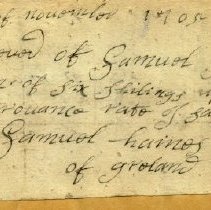 of november 1705
of Samuel
of six shilings
rouance rate of
Samuel haines
of greland